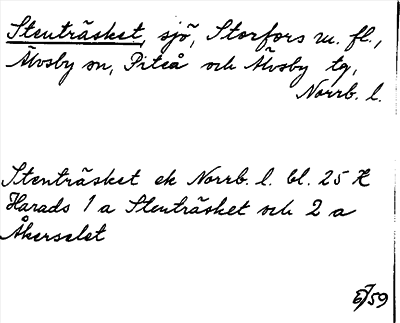 Stenträsket, sjö, Storfors m. fl.,
Älvsby sn, Piteå och Älvsby tg,
Norrb. l.
Stenträsket ek Norrb. l. bl. 25 K
Harads 1 a Stenträsket och 2 a
Åkerselet
6/59